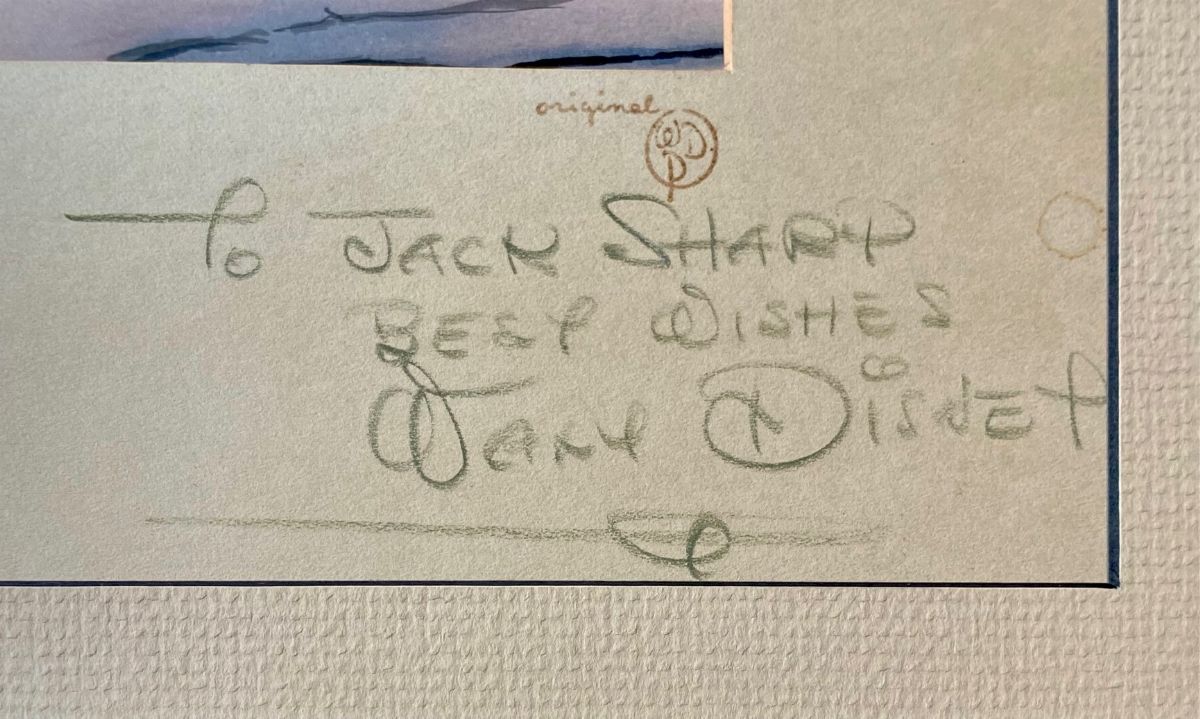 original
WDP
To JACK SHARP
BEST WISHES
WALT DISNEY